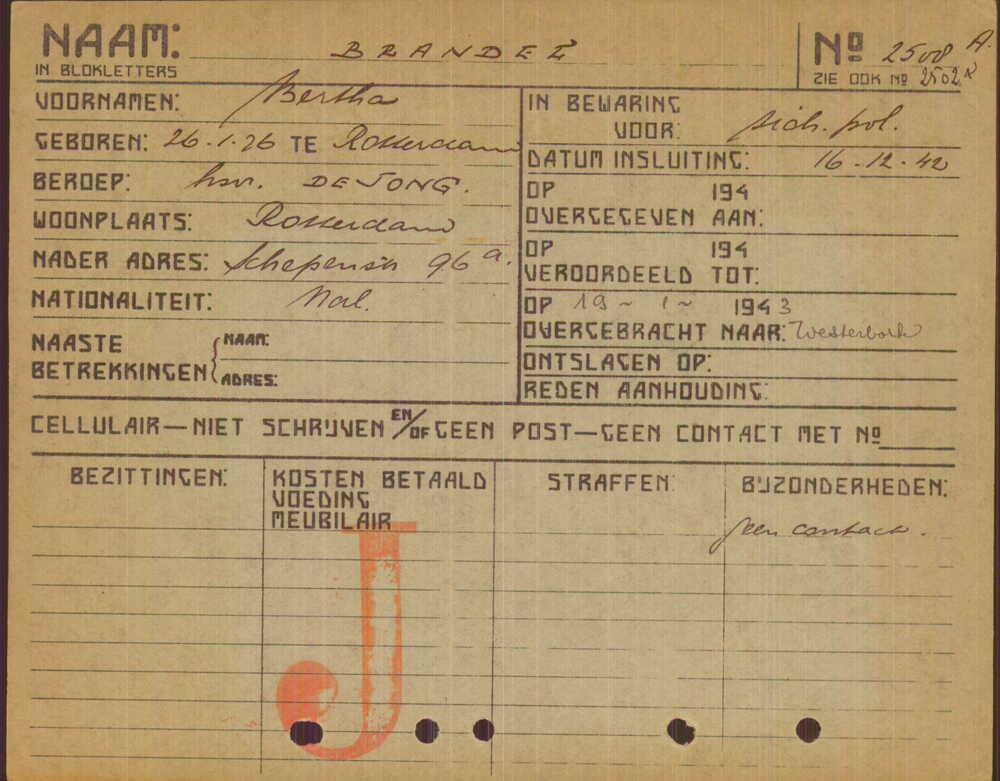 NAAM: BRANDEI
IN BLOKLETTERS
No 2508 A.
ZIE OOK No 2502
VOORNAMEN: Bertha
GEBOREN: 26.1.26 TE Rotterdam
BEROEP: hsv. DE JONG.
WOONPLAATS: Rotterdam
NADER ADRES: 96 a.
NATIONALITEIT: Ned.
NAASTE BETREKKINGEN
NAAM:
ADRES:
IN BEWARING
VOOR: sich. pol.
DATUM INSLUITING: 16-12-42
OP 194
OVERGEGEVEN AAN:
OP 194
VEROORDEELD TOT:
OP 19-1-1943
OVERGEBRACHT NAAR: Westerbork
ONTSLAGEN OP:
REDEN AANHOUDING:
CELLULAIR—NIET SCHRIJVEN EN/OF GEEN POST—GEEN CONTACT MET No
BEZITTINGEN:
KOSTEN BETAALD
VOEDING
MEUBILAIR
STRAFFEN:
BIJZONDERHEDEN:
geen contact.
J